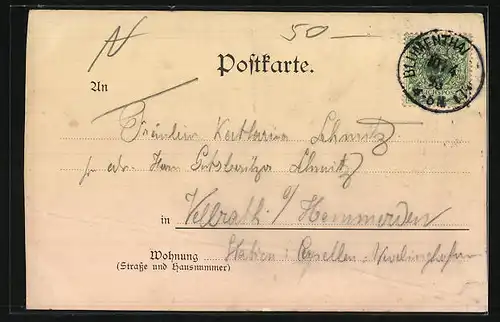 N 50 -
Postkarte.
BLUMENTHAL
An
Fräulein Katharina Schmitz
p. adr. Herrn Gutsbesitzer Schmitz
in Vellrath b/ Hemmerden
Wohnung Station: Capellen-Wevelinghofen
(Straße und Hausnummer)